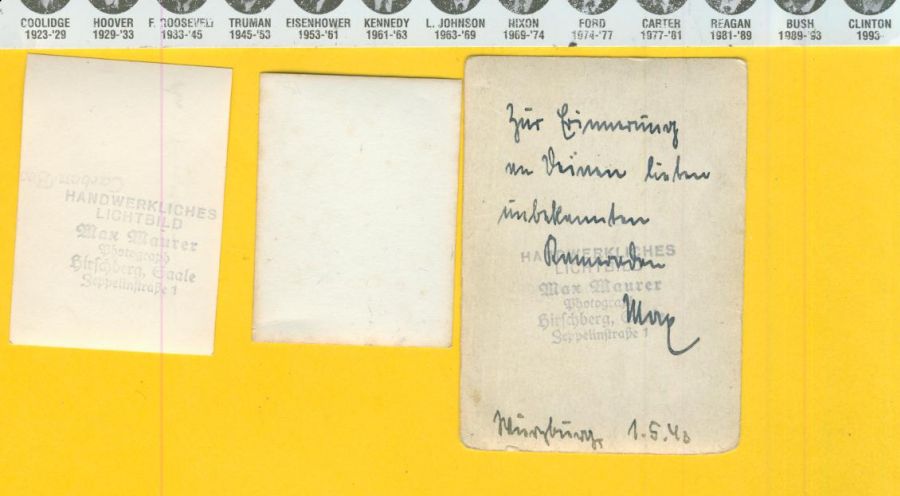 COOLIDGE HOOVER F. ROOSEVELT TRUMAN EISENHOWER KENNEDY L. JOHNSON NIXON FORD CARTER REAGAN BUSH CLINTON
1923-'29 1929-'33 1933-'45 1945-'53 1953-'61 1961-'63 1963-'69 1969-'74 1974-'77 1977-'81 1981-'89 1989-'93 1993-
HANDWERKLICHES
LICHTBILD
Max Maurer
Photograph
Hirschberg, Saale
Zeppelinstraße 1
Zur Erinnerung
an Deinen lieben
unbekannten
Kameraden
Max
HANDWERKLICHES
LICHTBILD
Max Maurer
Photograph
Hirschberg,
Zeppelinstraße 1
Würzburg, 1.5.43